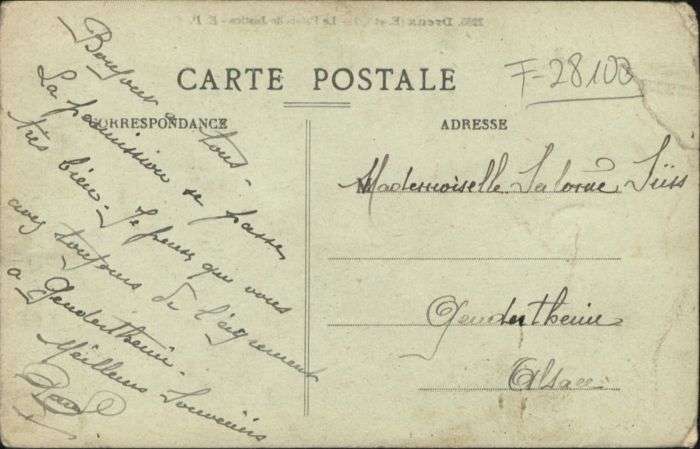 CARTE POSTALE
F-28100
CORRESPONDANCE
ADRESSE
Bonjour a tous.
La permission se passe
très bien. Je pense que vous
avez toujours de l'agrement
a Geudertheim.
Meilleurs Souvenirs
Mademoiselle Salomé Süss
Geudertheim
Alsace